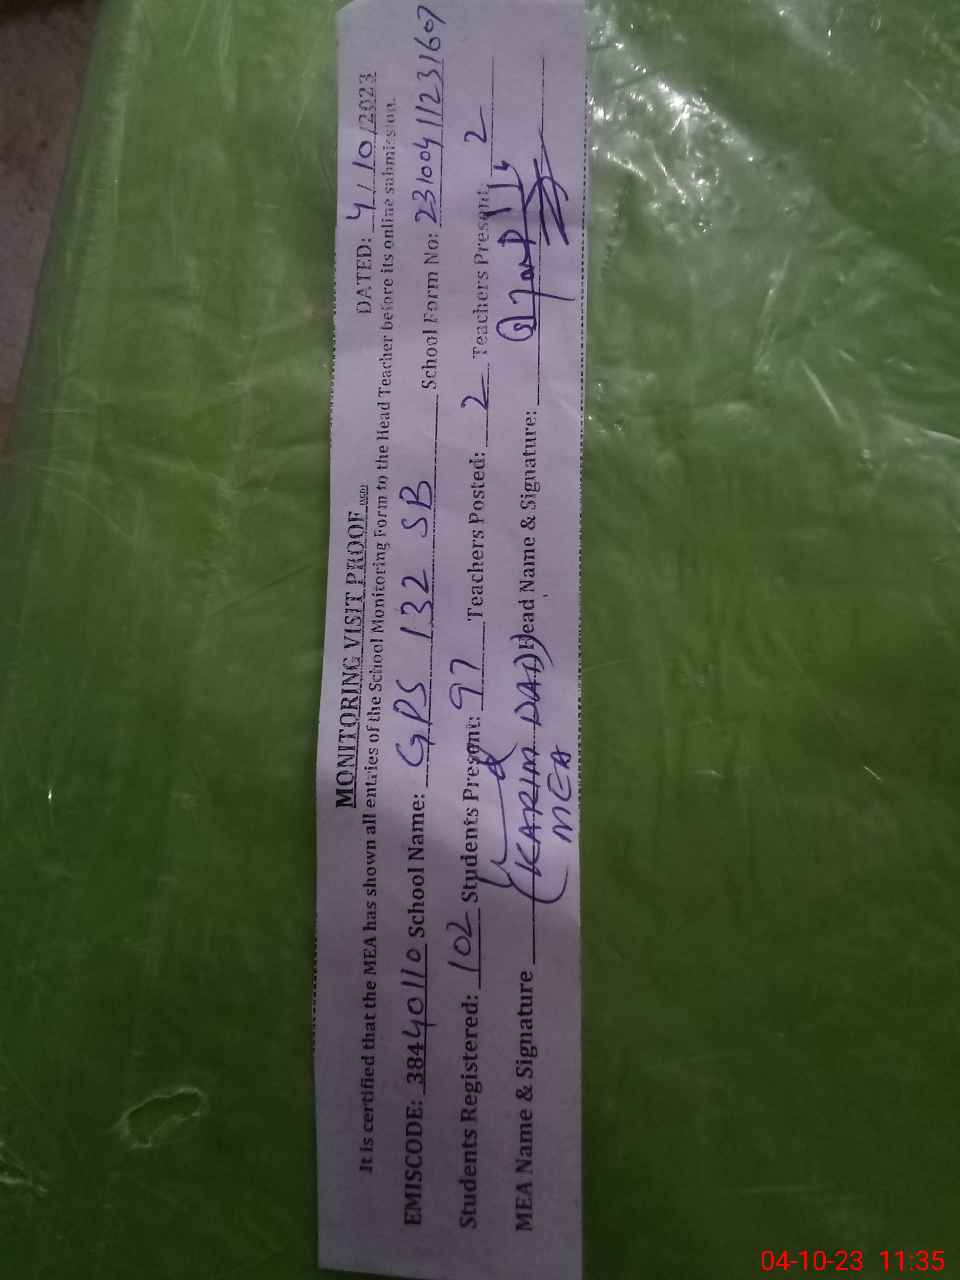 MONITORING VISIT PROOF
DATED: 4/10/2023
It is certified that the MEA has shown all entries of the School Monitoring Form to the Head Teacher before its online submission.
EMISCODE: 38440110 School Name: GPS 132 SB School Form No: 23100411231607
Students Registered: 102 Students Present: 97 Teachers Posted: 2 Teachers Present: 2
MEA Name & Signature (KARIM DAD) Head Name & Signature:
MEA
04-10-23 11:35